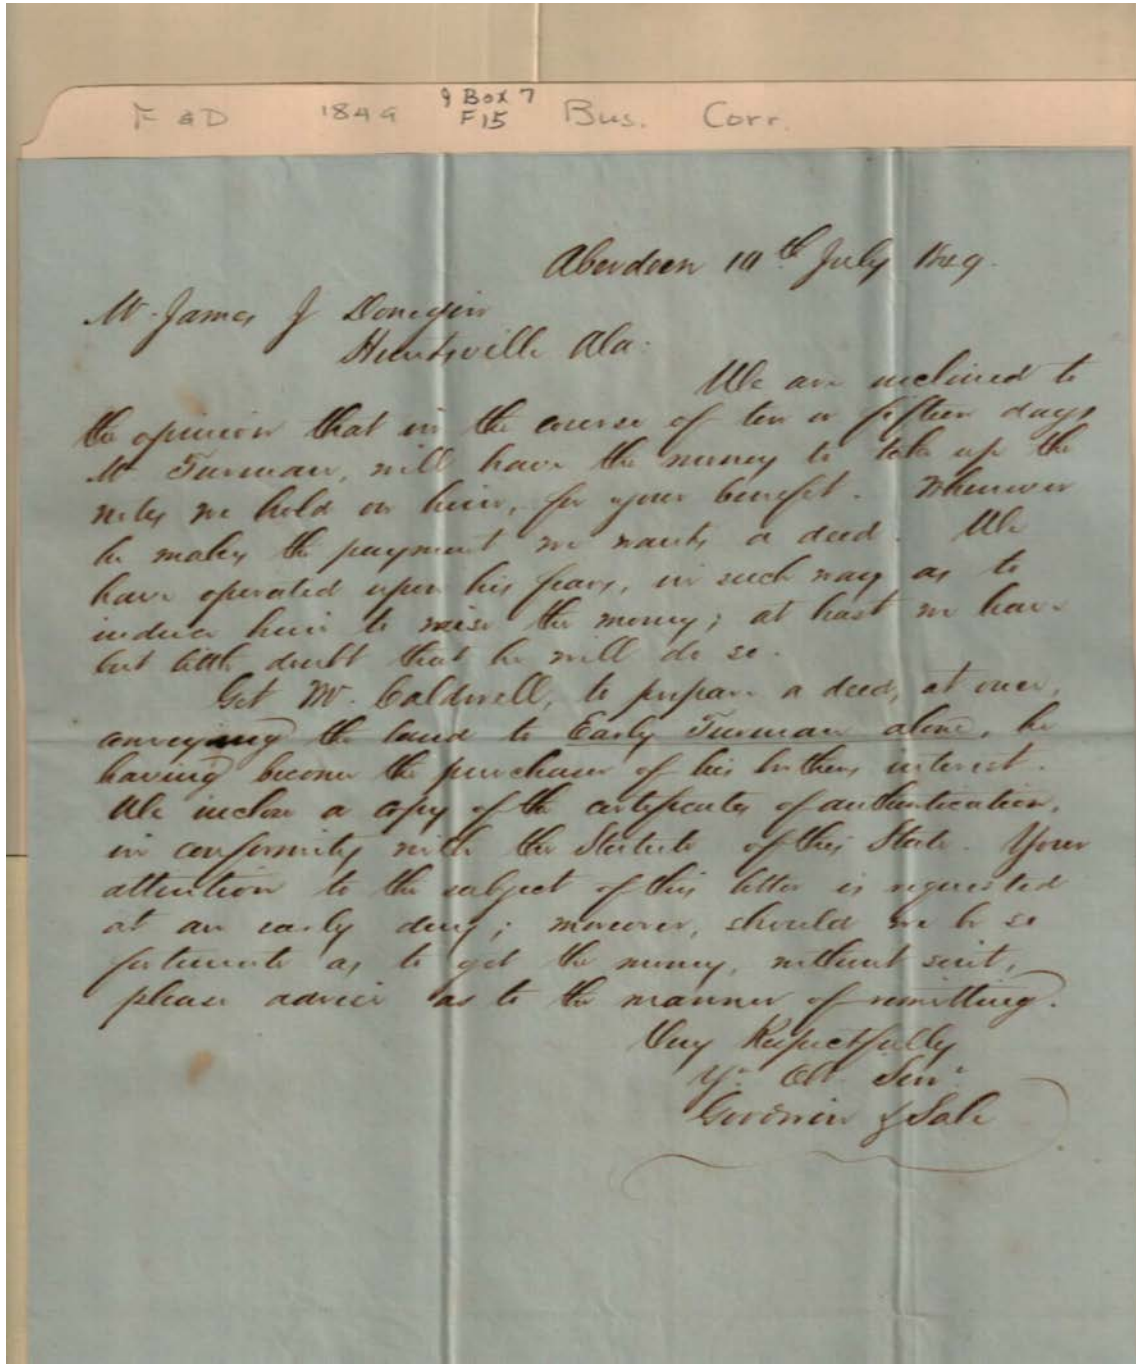 F & D 1849 9 Box 7 F15 Bus. Corr.
Aberdeen 10th July 1849.
Mr. James J Donegin
Huntsville Ala.
We are inclined to
the opinion that in the course of ten or fifteen days
Mr Turman, will have the money to take up the
notes we hold on him, for your benefit. Whenever
he makes the payment we wants a deed. We
have operated upon his fears, in such way as to
induce him to raise the money; at least we have
but little doubt that he will do so.
Get Mr. Caldwell, to prepare a deed, at once,
conveying the land to Early Turman alone, he
having become the purchaser of his brothers interest.
We inclose a copy of the certificates of authentication,
in conformity with the Statute of this State. Your
attention to the subject of this letter is requested
at an early day; moreover, should we be so
fortunate as to get the money, without suit,
please advise as to the manner of remitting.
Very Respectfully
Yr. Obt. Servt.
Goodwin & Sale